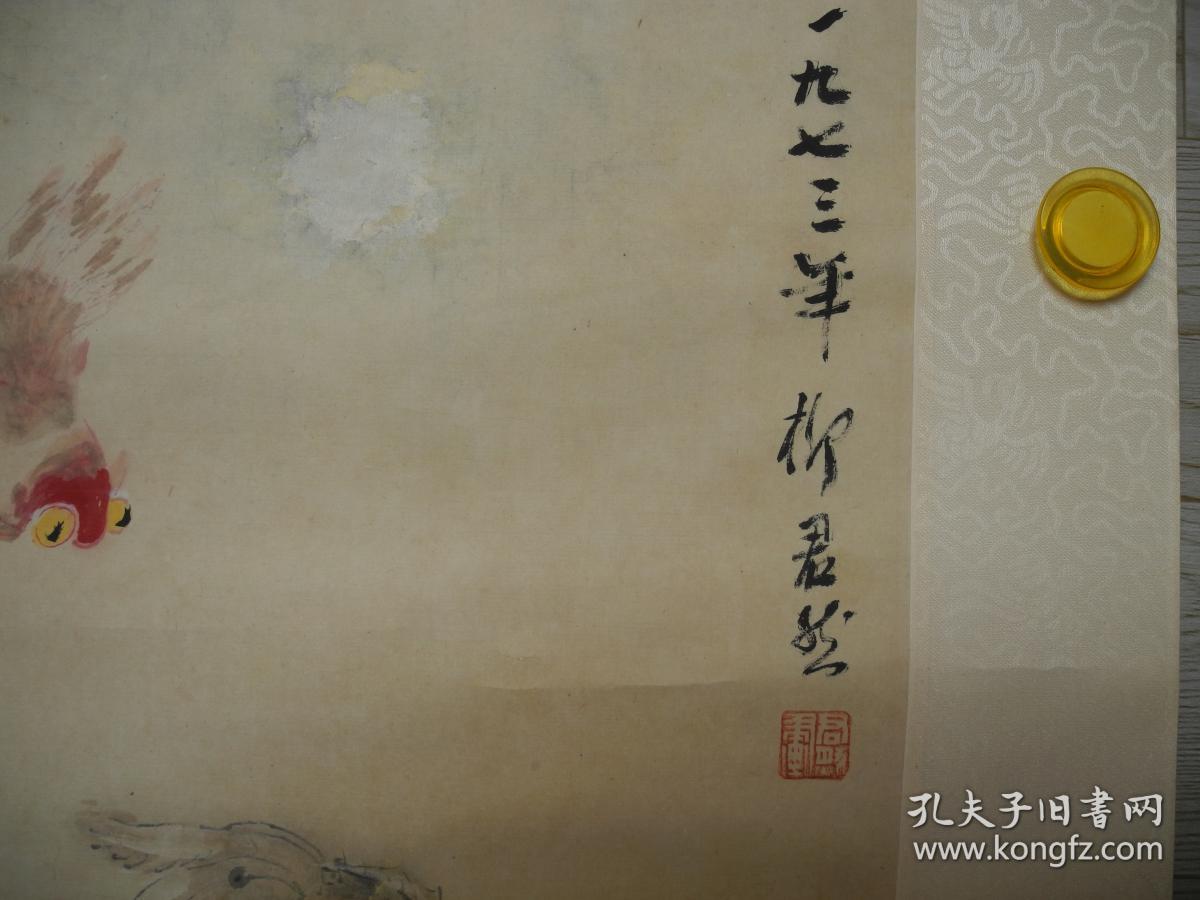 一九七三年 柳君然
孔夫子旧书网
www.kongfz.com